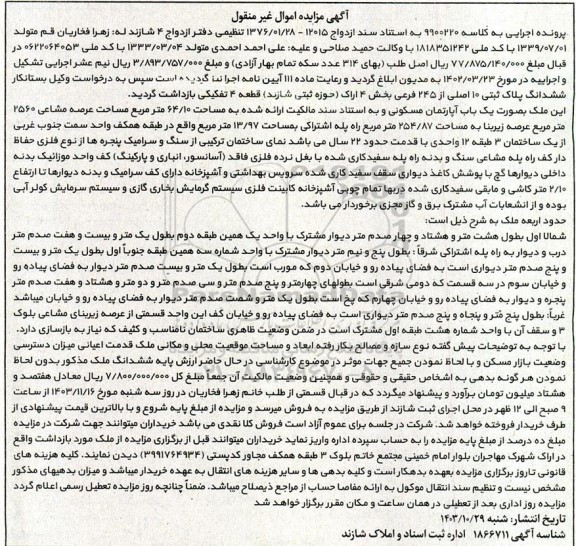 آگهی مزایده اموال غیر منقول
پرونده اجرایی به کلاسه ۹۹۰۰۲۲۰ به استناد سند ازدواج ۱۲۰۱۵ - ۱۳۷۶/۰۱/۲۸ تنظیمی دفتر ازدواج ۴ شازند له: زهرا فخاریان قم متولد
۱۳۳۹/۰۷/۰۱ با کد ملی ۱۸۱۸۳۵۱۲۴۲ با وکالت حمید صلاحی و علیه: علی احمد احمدی متولد ۱۳۳۳/۰۳/۰۴ با کد ملی ۰۶۲۲۰۶۴۰۵۳ در
قبال مبلغ ۷۷/۸۷۵/۱۴۰/۰۰۰ ریال اصل طلب (بهای ۳۱۴ عدد سکه تمام بهار آزادی) و مبلغ ۳/۸۹۳/۷۵۷/۰۰۰ ریال نیم عشر اجرایی تشکیل
و اجراییه در مورخ ۱۴۰۲/۰۳/۲۳ به مدیون ابلاغ گردید و رعایت ماده ۱۱۱ آیین نامه اجرا سپس به درخواست وکیل بستانکار
ششدانگ پلاک ثبتی ۱۰ اصلی از ۲۴۵ فرعی بخش ۴ اراک (حوزه ثبتی شازند) قطعه ۴ تفکیکی بازداشت گردید.
این ملک بصورت یک باب آپارتمان مسکونی و به استناد سند مالکیت ارائه شده به مساحت ۶۴/۱۰ متر مربع مساحت عرصه مشاعی ۲۵۶۰
متر مربع عرصه زیربنا به مساحت ۲۵۴/۸۷ متر مربع راه پله اشتراکی بمساحت ۱۳/۹۷ متر مربع واقع در طبقه همکف واحد سمت جنوب غربی
از یک ساختمان ۳ طبقه ۱۲ واحدی با قدمت حدود ۲۲ سال می باشد نمای ساختمان ترکیبی از سنگ و سرامیک پنجره ها از نوع فلزی حفاظ
دار کف راه پله مشاعی سنگ و بدنه راه پله سفیدکاری شده با بغل نرده فلزی فاقد (آسانسور، انباری و پارکینگ) کف واحد موزائیک بدنه
داخلی دیوارها گچ با پوشش کاغذ دیواری سقف سفید کاری شده سرویس بهداشتی و آشپزخانه دارای کف سرامیک و بدنه دیوارها تا ارتفاع
۲/۱۰ متر کاشی و مابقی سفیدکاری شده دربها تمام چوبی آشپزخانه کابینت فلزی سیستم گرمایش بخاری گازی و سیستم سرمایش کولر آبی
بوده و از انشعابات آب مشترک برق و گاز مجزی برخوردار می باشد.
حدود اربعه ملک به شرح ذیل است:
شمالا اول بطول هشت متر و هشتاد و چهار صدم متر دیوار مشترک با واحد یک همین طبقه دوم بطول یک متر و بیست و هفت صدم متر
درب و دیوار به راه پله اشتراکی شرقاً : بطول پنج و نیم متر دیوار مشترک با واحد شماره سه همین طبقه جنوباً اول بطول یک متر و بیست
و پنج صدم متر دیواری است به فضای پیاده رو و خیابان دوم که مورب است بطول یک متر و بیست صدم متر دیوار به فضای پیاده رو
و خیابان سوم در سه قسمت که دومی شرقی است بطولهای چهارمتر و پنج صدم متر و سی صدم متر و دو متر و هشتاد و هفت صدم متر
پنجره و دیوار به فضای پیاده رو و خیابان چهارم که پخ است بطول یک متر و شصت صدم متر دیوار به فضای پیاده رو و خیابان میباشد
غرباً: بطول پنج متر و پنجاه و پنج صدم متر دیواری است به فضای پیاده رو و خیابان کف این واحد قسمتی از عرصه زیربنای مشاعی بلوک
۳ و سقف آن با واحد شماره هشت طبقه اول مشترک است در ضمن وضعیت ظاهری ساختمان نامناسب و کثیف که نیاز به بازسازی دارد.
با توجه به توضیحات پیش گفته نوع سازه و مصالح بکار رفته ابعاد و مساحت موقعیت محلی و مکانی ملک قدمت اعیانی میزان دسترسی
وضعیت بازار مسکن و با لحاظ نمودن جمیع جهات موثر در موضوع کارشناسی در حال حاضر ارزش پایه ششدانگ ملک مذکور بدون لحاظ
نمودن هر گونه بدهی به اشخاص حقیقی و حقوقی و همچنین وضعیت مالکیت آن جمعاً مبلغ کل ۷/۸۰۰/۰۰۰/۰۰۰ ریال معادل هفتصد و
هشتاد میلیون تومان برآورد و پیشنهاد میگردد که در قبال قسمتی از طلب خانم زهرا فخاریان در روز سه شنبه مورخ ۱۴۰۳/۱۱/۱۶ از ساعت
۹ صبح الی ۱۲ ظهر در محل اجرای ثبت شازند از طریق مزایده به فروش میرسد و مزایده از مبلغ پایه شروع و با بالاترین قیمت پیشنهادی از
طرف خریدار فروخته خواهد شد. شرکت در جلسه برای عموم آزاد است فروش کلا نقدی می باشد خریداران میتوانند جهت شرکت در مزایده
مبلغ ده درصد از مبلغ پایه مزایده را به حساب سپرده اداره واریز نماید خریداران میتوانند قبل از برگزاری مزایده از ملک مورد بازداشت واقع
در اراک شهرک مهاجران بلوار امام خمینی مجتمع خاتم بلوک ۳ طبقه همکف مجاور کدپستی (۳۹۹۱۷۶۴۹۳۴) دیدن نمایند. کلیه هزینه های
قانونی تا روز برگزاری مزایده بعهده بدهکار است و کلیه بدهی ها و سایر هزینه های انتقال به عهده خریدار میباشد و میزان بدهیهای مذکور
مشخص نیست و تنظیم سند انتقال موکول به ارائه مفاصا حساب از مراجع ذیصلاح میباشد. ضمناً چنانچه روز مزایده تعطیل رسمی اعلام گردد
مزایده روز اداری بعد از تعطیلی در همان ساعت و مکان مقرر برگزار خواهد شد
تاریخ انتشار: شنبه ۱۴۰۳/۱۰/۲۹
شناسه آگهی ۱۸۶۶۷۱۱ اداره ثبت اسناد و املاک شازند